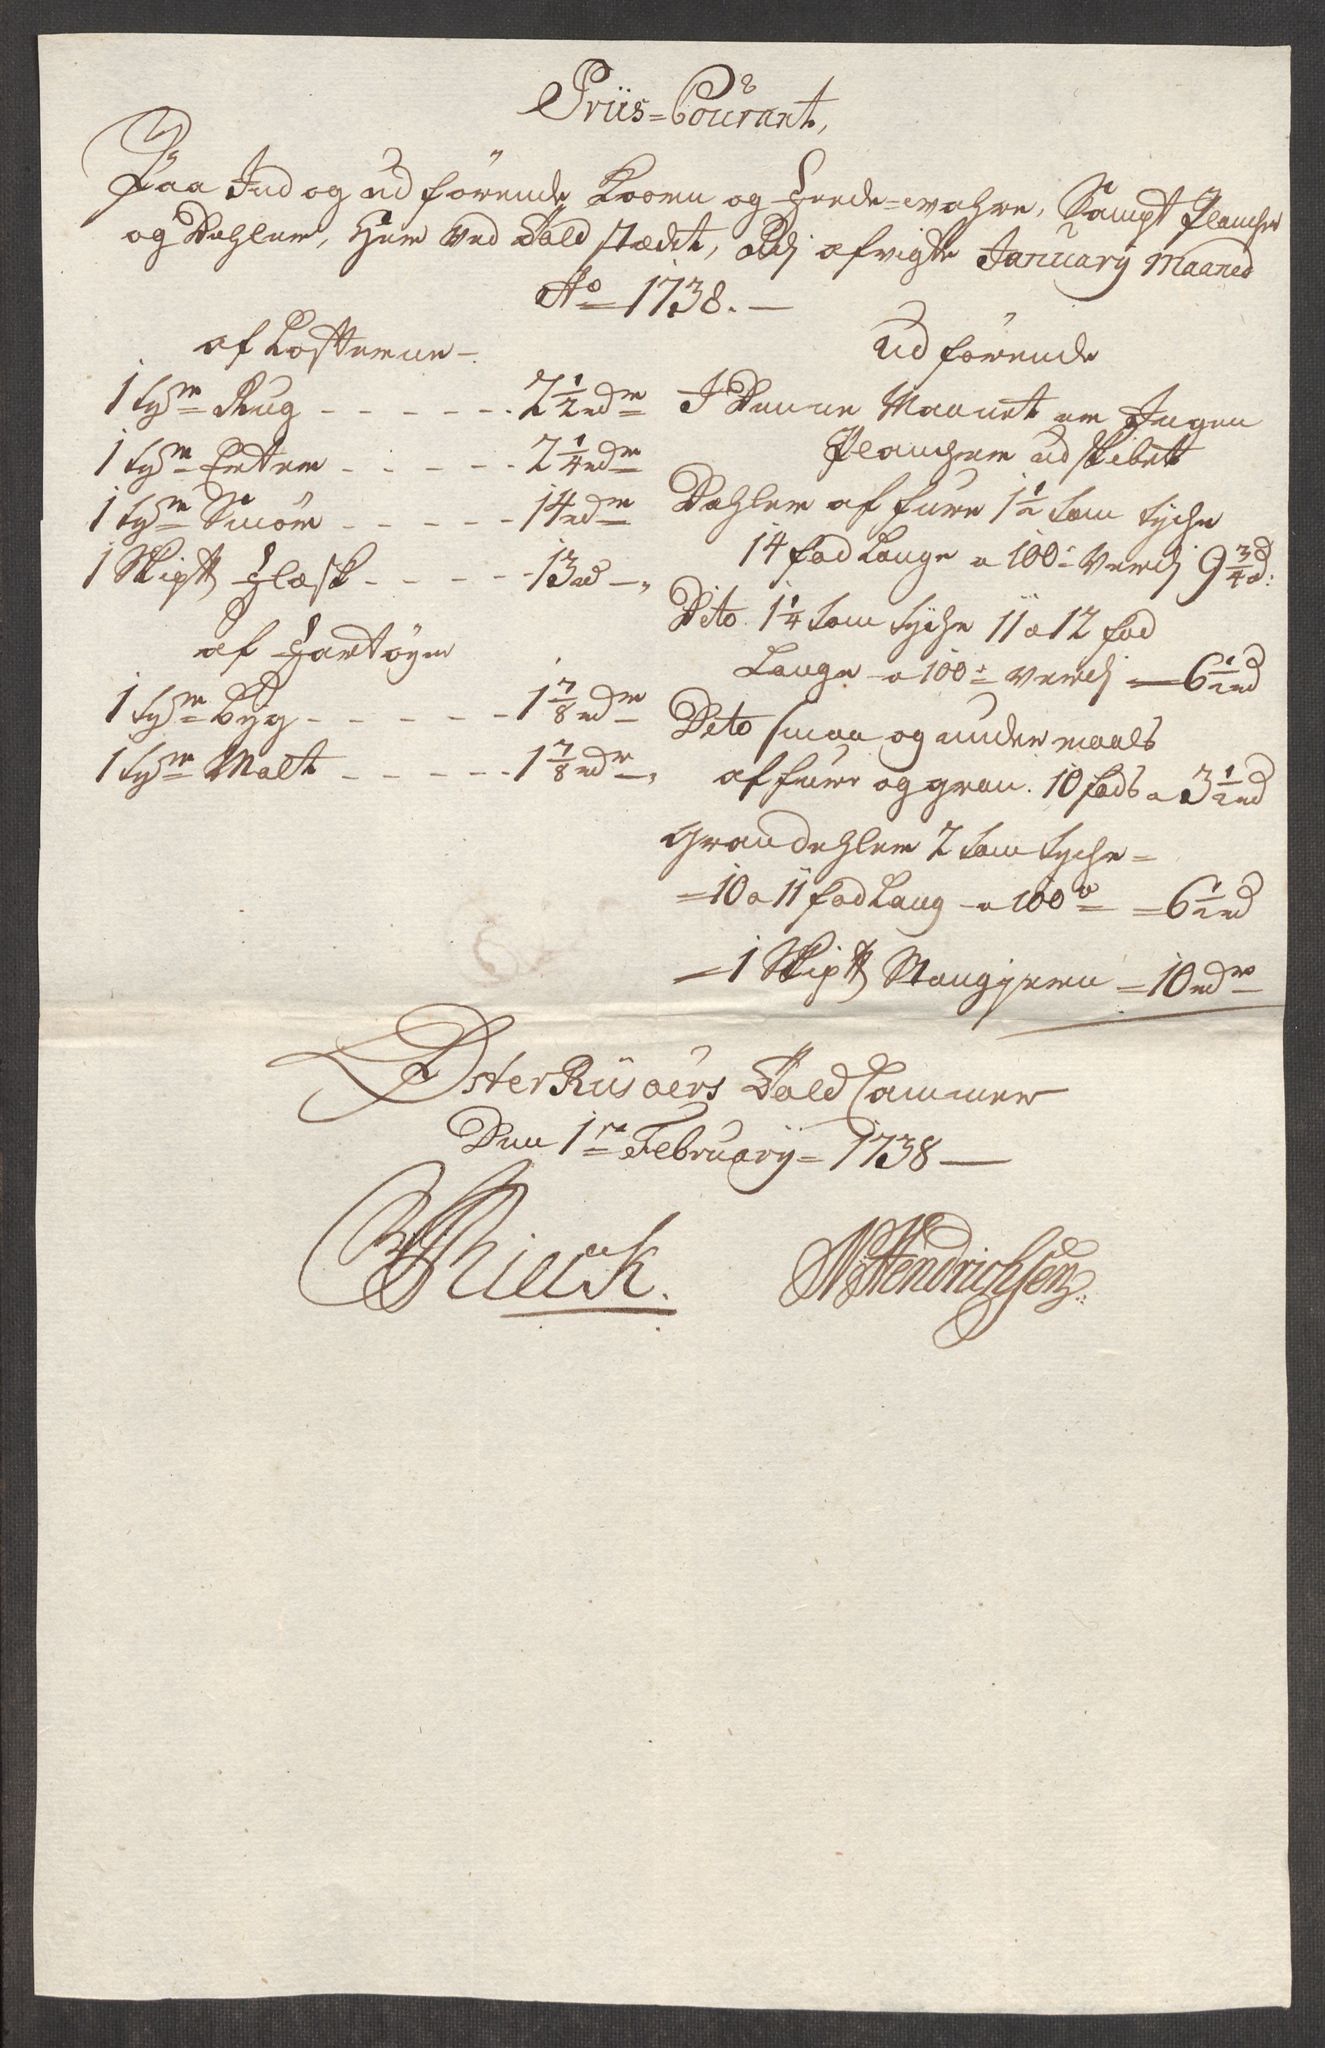 Priis=Courant,
Paa Ind og udförende Koorn og Fede=wahre, Sampt Plancher
og Dehler, Her ved Toldstædet, Udj afvigte January Maaned
Ao 1738.
af Kofferne
1 tøn Rug - - - - - - 2 1/2 rdr
1 tøn Erter - - - - - 2 1/4 rdr
1 tøn Smör - - - - - 14 rdr
1 Skip℔ Flæsk - - - - - 13 rd
af Fartöyer
1 tøn Byg - - - - - 1 7/8 rdr
1 tøn Malt - - - - - 1 7/8 rdr
Udförende
I Denne Maanet er Ingen
Plancher udskibett
Dehler af fure 1 1/2 tom tyche
14 fod Lange a 100 verdj 9 3/4 rd:
Dito 1 1/4 tom tyche 11 a 12 fod
Lange a 100 verdj 6 1/2 rd
Dito smaa og undermaals
af fure og gran. 10 fods a 3 1/2 rd
Grandehler 2 tom tyche =
=10 a 11 fod Lang a 100 = 6 1/2 rd
=1 Skip℔ Stangjern = 10 rdr
Öster Riisöers Told Cammer
Den 1ste February = 1738
Rieck.
N. Hendrichsen